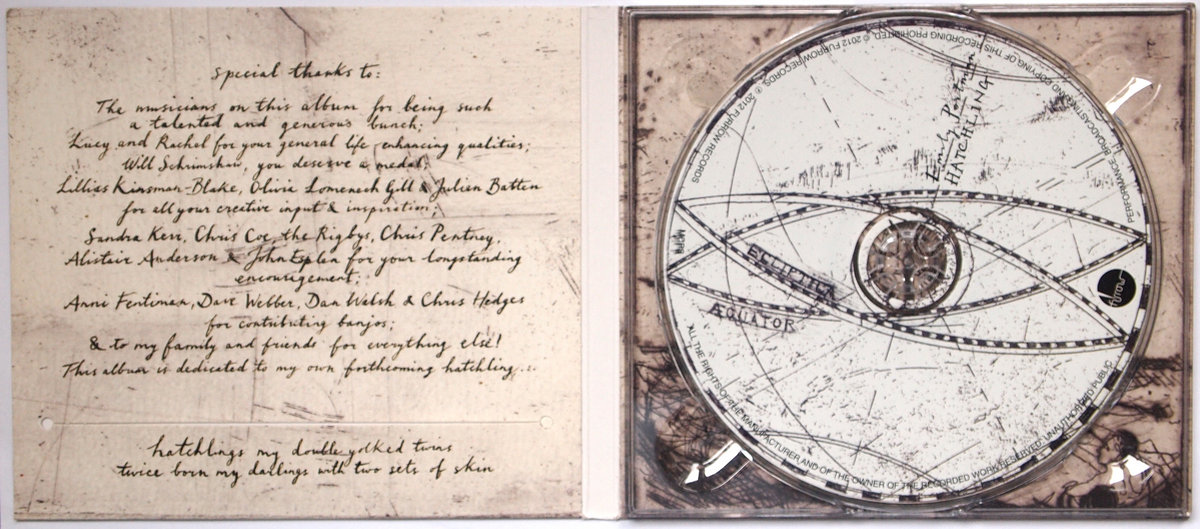 special thanks to:
The musicians on this album for being such
a talented and generous bunch;
Lucy and Rachel for your general life enhancing qualities;
Will Schrimshaw, you deserve a medal;
Lillias Kinsman-Blake, Olivia Lomenech Gill & Julien Batten
for all your creative input & inspiration;
Sandra Kerr, Chris Coe, the Rigbys, Chris Pentney,
Alistair Anderson & John Esplen for your longstanding
encouragement;
Anni Fentiman, Dave Webber, Dan Walsh & Chris Hedges
for contributing banjos;
& to my family and friends for everything else!
This album is dedicated to my own forthcoming hatchling...
hatchlings my double-yolked twins
twice born my darlings with two sets of skin
Emily Portman
HATCHLING
ECLIPTICA
ÆQUATOR
furrow
ALL THE RIGHTS OF THE MANUFACTURER AND OF THE OWNER OF THE RECORDED WORK RESERVED. UNAUTHORISED PUBLIC PERFORMANCE BROADCASTING AND COPYING OF THIS RECORDING PROHIBITED. © 2012 FURROW RECORDS. ℗ 2012 FURROW RECORDS